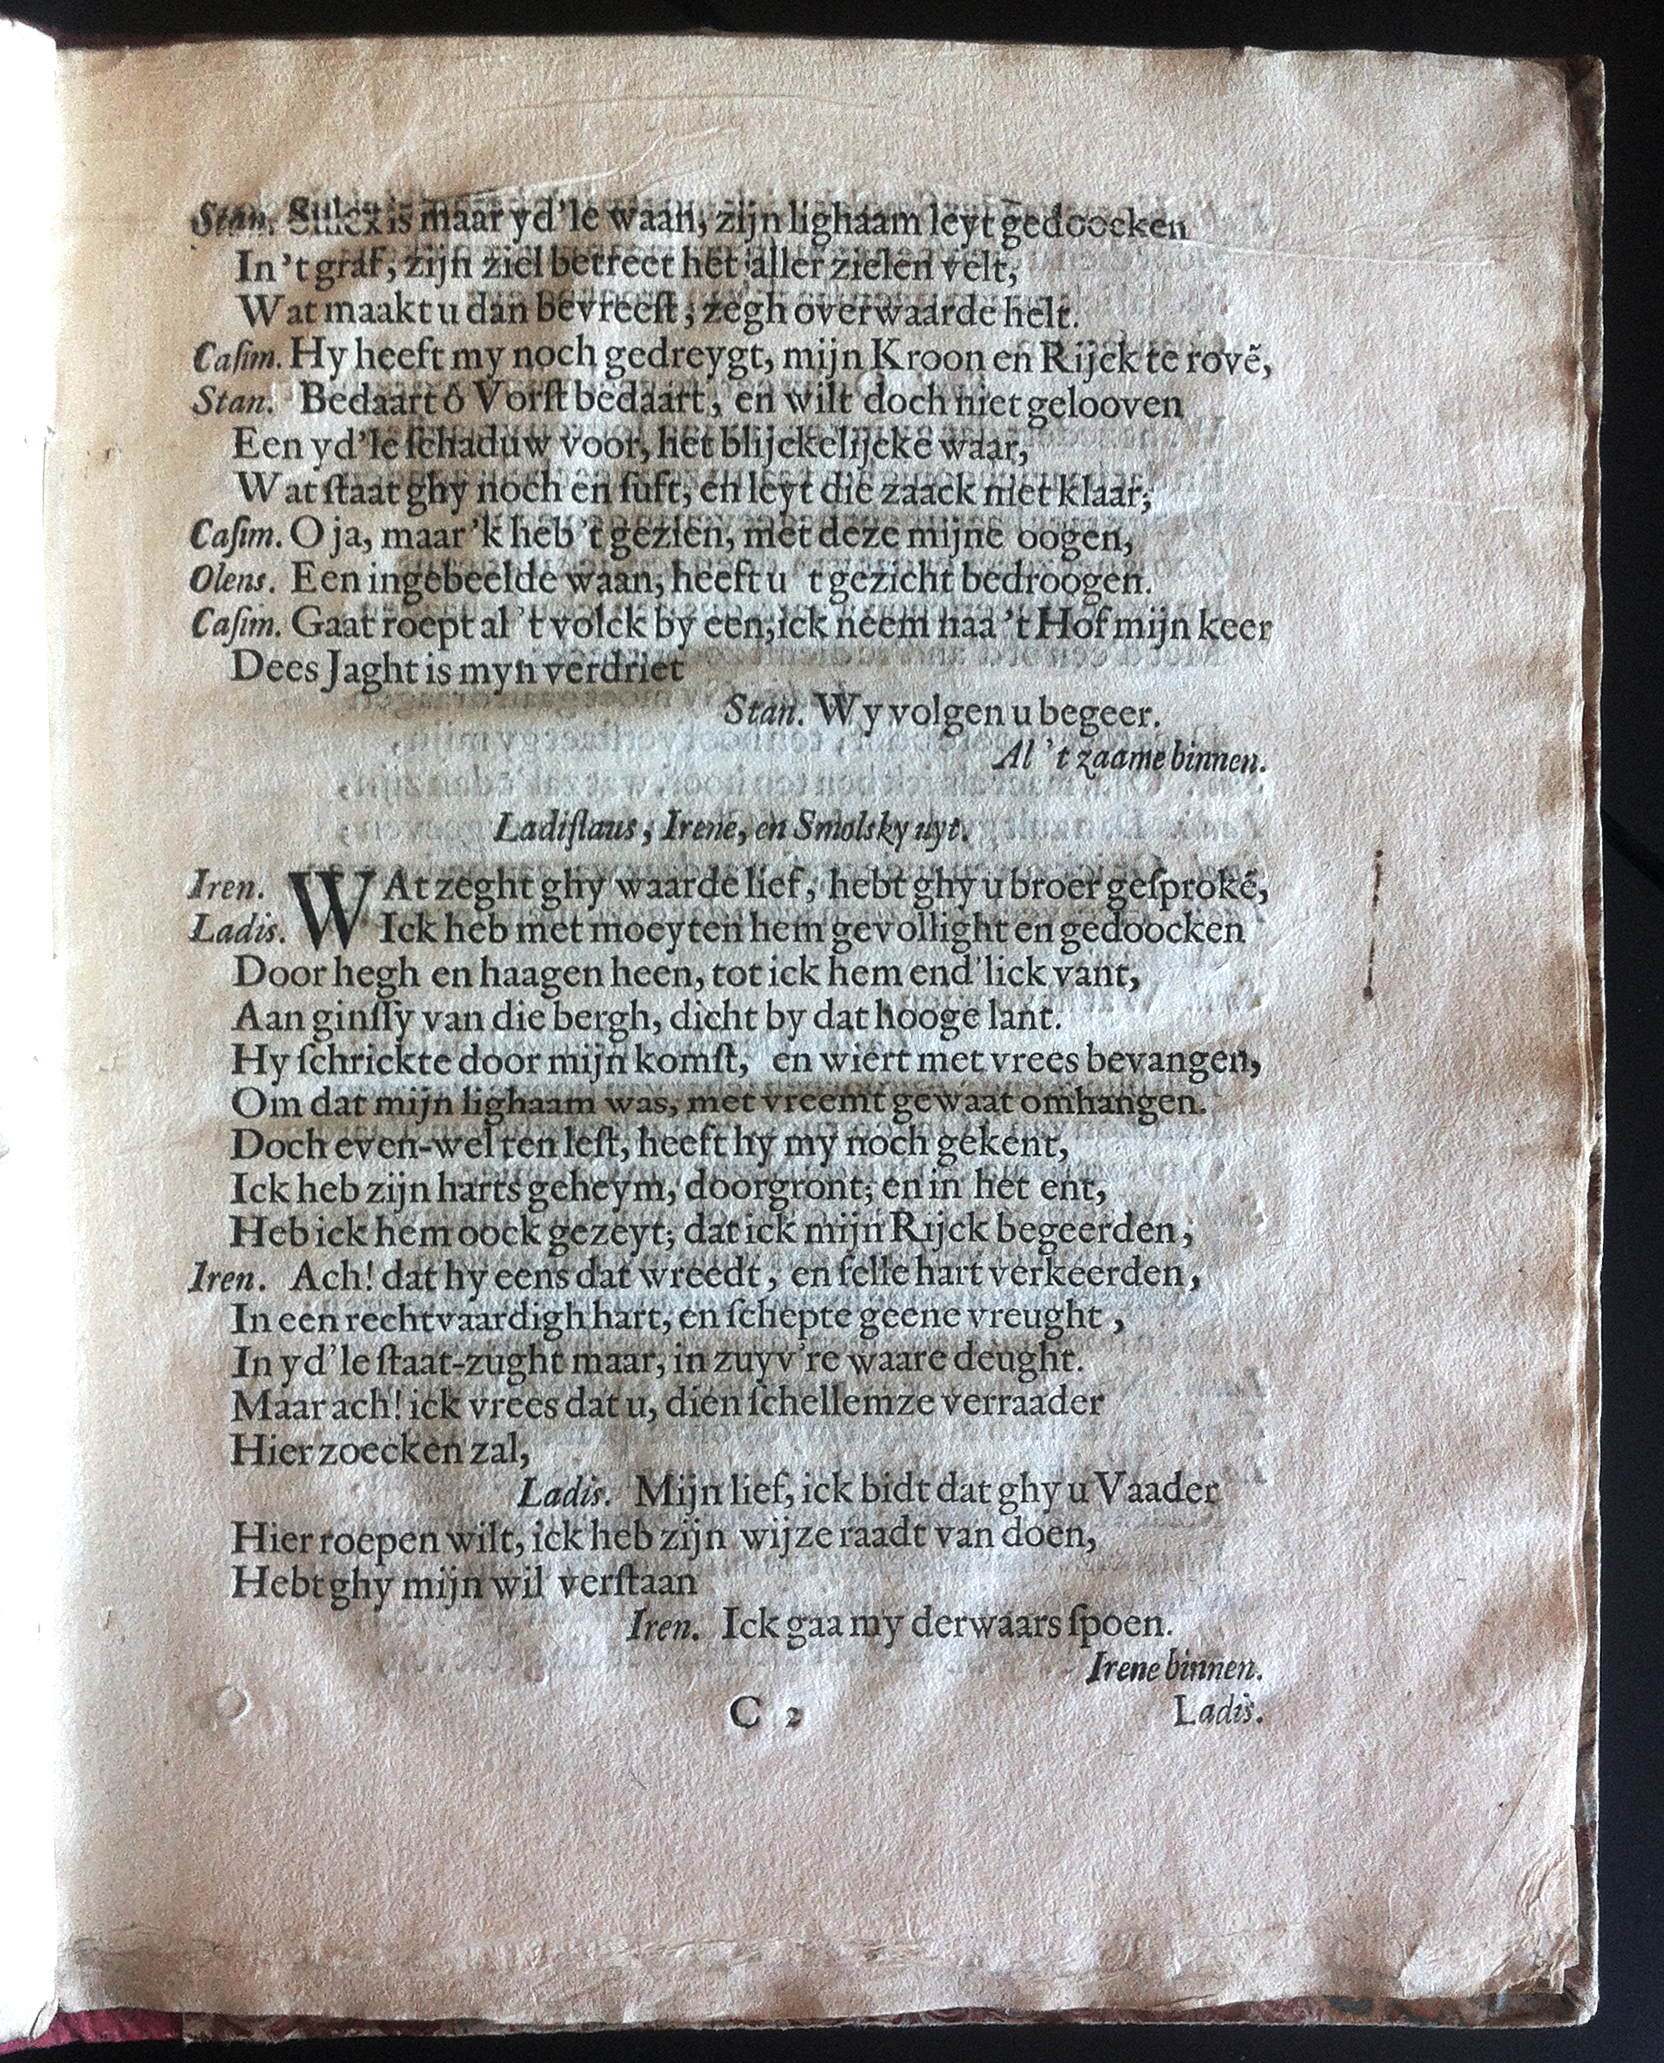 Stan. Sulcx is maar yd'le waan, zijn lighaam leyt gedoocken
In 't graf, zijn ziel betreet het aller zielen velt,
Wat maakt u dan bevreeſt, zegh overwaarde helt.
Caſim. Hy heeft my noch gedreygt, mijn Kroon en Rijck te rovẽ,
Stan. Bedaart ô Vorſt bedaart, en wilt doch niet gelooven
Een yd'le ſchaduw voor, het blijckelijcke waar,
Wat ſtaat ghy noch en ſuft, en leyt die zaack niet klaar,
Caſim. O ja, maar 'k heb 't gezien, met deze mijne oogen,
Olens. Een ingebeelde waan, heeft u 't gezicht bedroogen.
Caſim. Gaat roept al 't volck by een, ick neem naa 't Hof mijn keer
Dees Jaght is myn verdriet
Stan. Wy volgen u begeer.
Al 't zaame binnen.
Ladiſlaus, Irene, en Smolsky uyt.
Iren. WAt zeght ghy waarde lief, hebt ghy u broer geſprokẽ,
Ladis. Ick heb met moeyten hem gevollight en gedoocken
Door hegh en haagen heen, tot ick hem end'lick vant,
Aan ginſſy van die bergh, dicht by dat hooge lant.
Hy ſchrickte door mijn komſt, en wiert met vrees bevangen,
Om dat mijn lighaam was, met vreemt gewaat omhangen.
Doch even-wel ten leſt, heeft hy my noch gekent,
Ick heb zijn harts geheym, doorgront, en in het ent,
Heb ick hem oock gezeyt, dat ick mijn Rijck begeerden,
Iren. Ach! dat hy eens dat wreedt, en felle hart verkeerden,
In een rechtvaardigh hart, en ſchepte geene vreught,
In yd'le ſtaat-zught maar, in zuyv're waare deught.
Maar ach! ick vrees dat u, dien ſchellemze verraader
Hier zoecken zal,
Ladis. Mijn lief, ick bidt dat ghy u Vaader
Hier roepen wilt, ick heb zijn wijze raadt van doen,
Hebt ghy mijn wil verſtaan
Iren. Ick gaa my derwaars ſpoen.
Irene binnen.
C 2 Ladis.